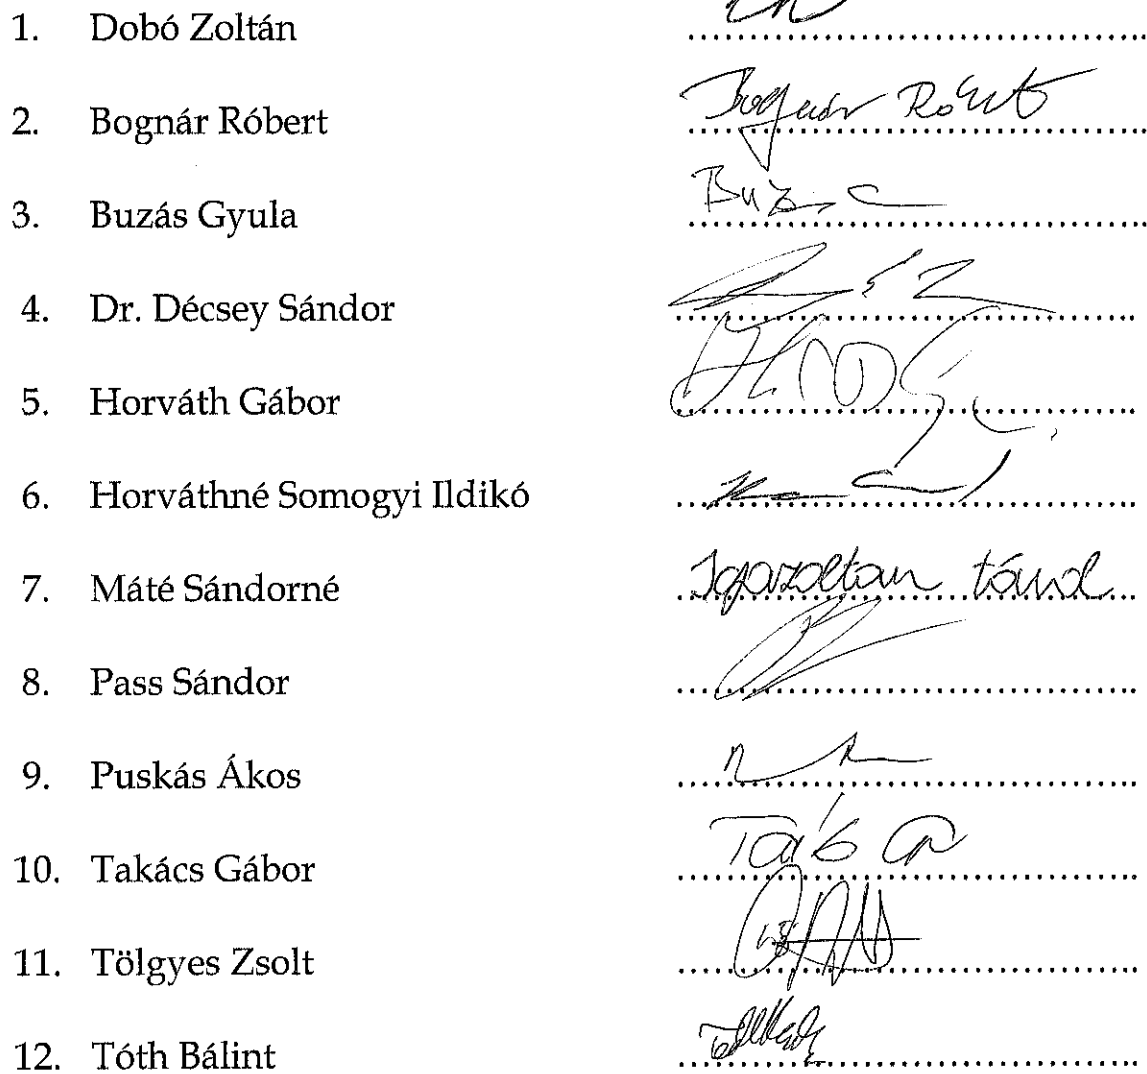 1. Dobó Zoltán
2. Bognár Róbert Bognár Róbert
3. Buzás Gyula
4. Dr. Décsey Sándor
5. Horváth Gábor
6. Horváthné Somogyi Ildikó
7. Máté Sándorné Igazoltan távol
8. Pass Sándor
9. Puskás Ákos
10. Takács Gábor
11. Tölgyes Zsolt
12. Tóth Bálint